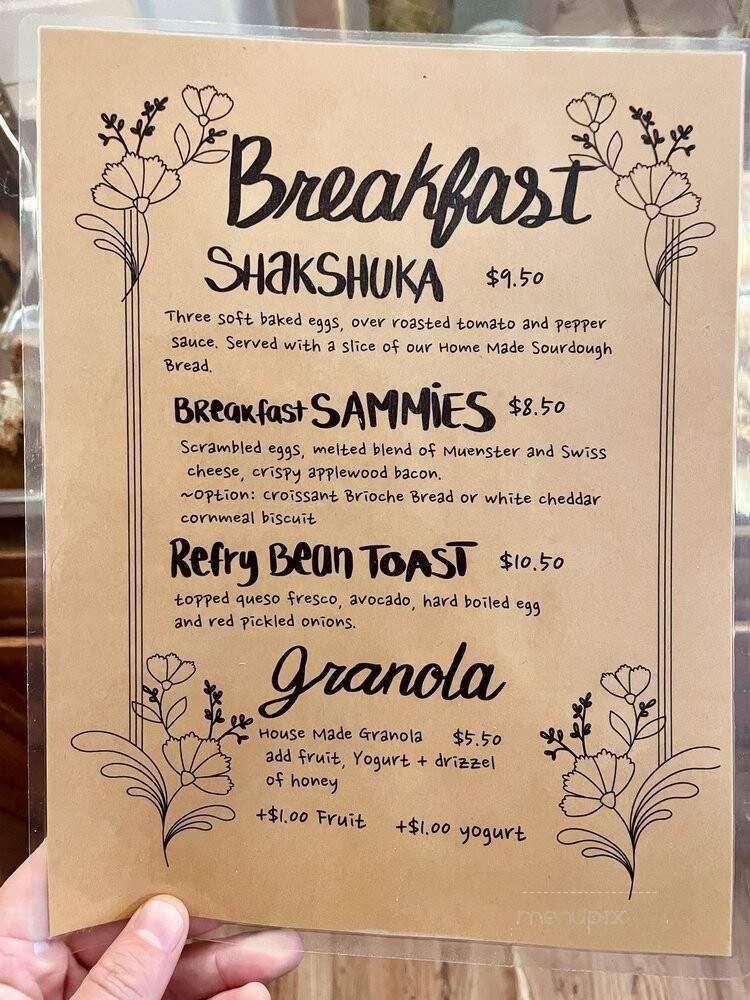 Breakfast
SHAKSHUKA $9.50
Three soft baked eggs, over roasted tomato and pepper
sauce. Served with a slice of our Home Made Sourdough
Bread.
Breakfast SAMMiES $8.50
Scrambled eggs, melted blend of Muenster and Swiss
cheese, crispy applewood bacon.
~Option: croissant Brioche Bread or white cheddar
cornmeal biscuit
Refry Bean TOAST $10.50
topped queso fresco, avocado, hard boiled egg
and red pickled onions.
granola
House Made Granola $5.50
add fruit, Yogurt + drizzel
of honey
+$1.00 Fruit +$1.00 yogurt
menupix